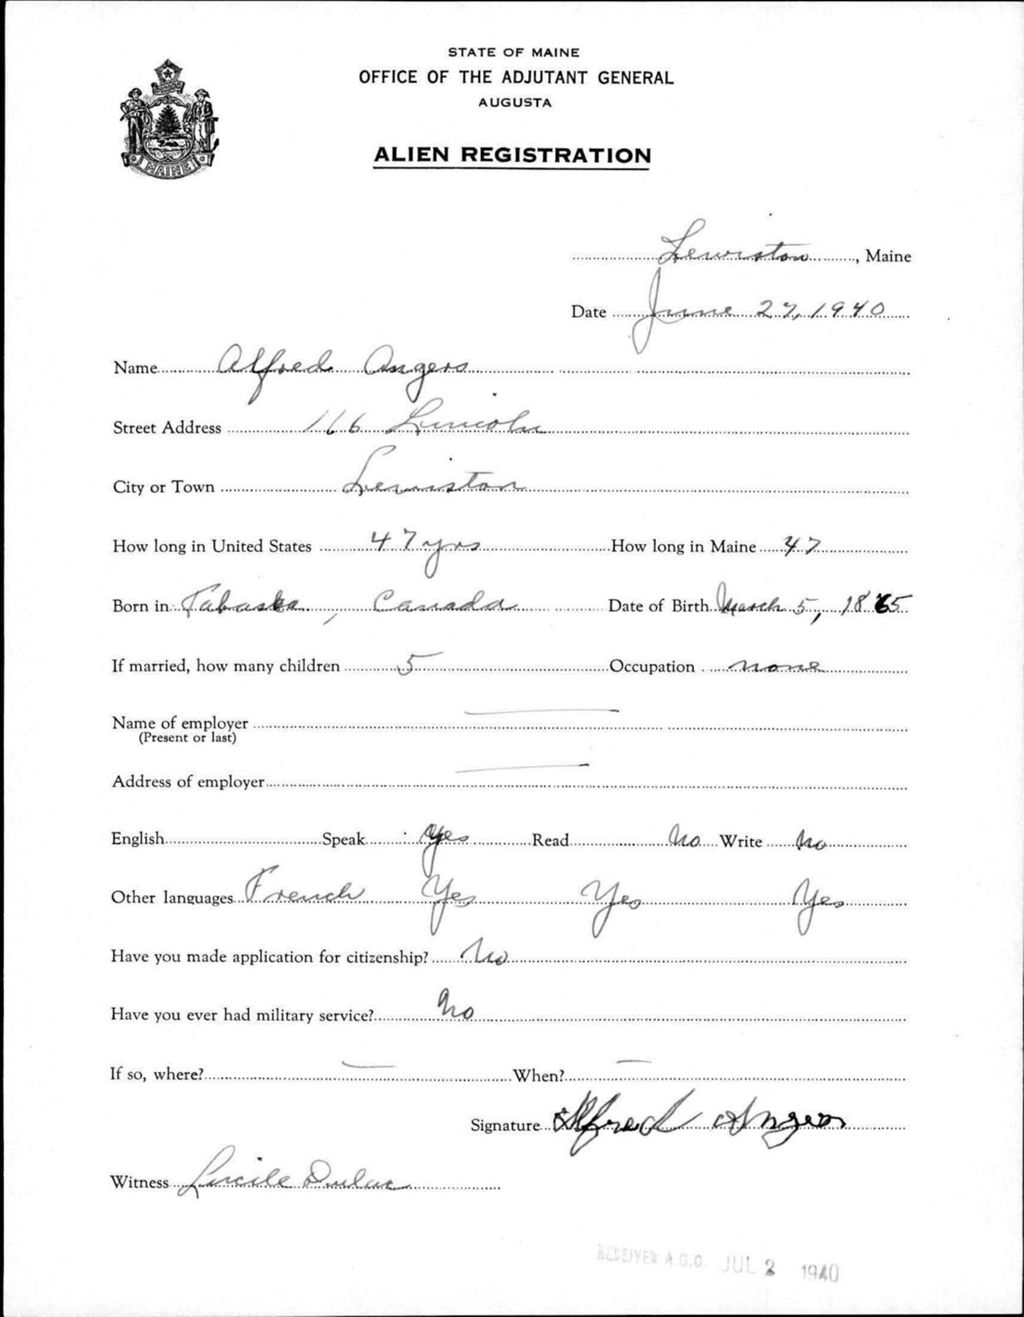 STATE OF MAINE
OFFICE OF THE ADJUTANT GENERAL
AUGUSTA
ALIEN REGISTRATION
MAINE
Lewiston, Maine
Date June 27, 1940
Name Alfred Angers
Street Address 116 Lincoln
City or Town Lewiston
How long in United States 47 yrs How long in Maine 47
Born in Tabaska, Canada Date of Birth March 5, 1865
If married, how many children 5 Occupation none
Name of employer
(Present or last)
Address of employer
English Speak Yes Read No Write No
Other languages French Yes Yes Yes
Have you made application for citizenship? No
Have you ever had military service? No
If so, where? When?
Signature Alfred Angers
Witness Lucile Dulac
RECEIVED A.G.O. JUL 2 1940